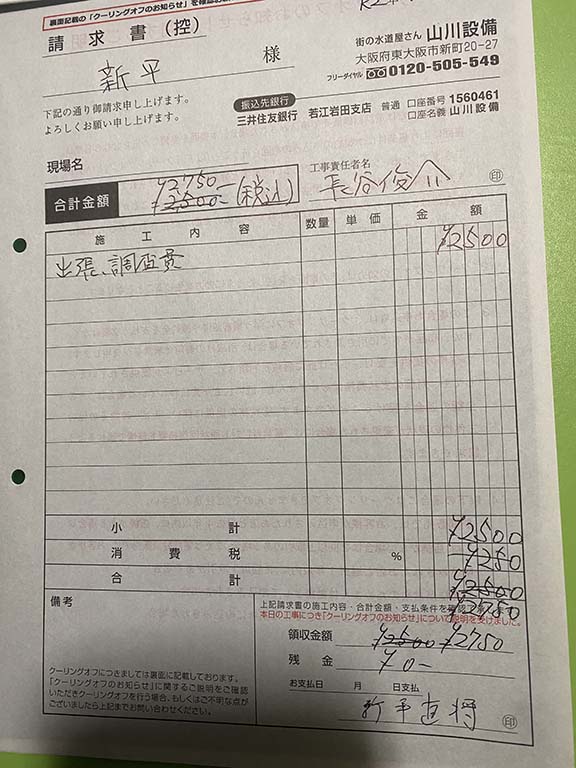 裏面記載の「クーリングオフのお知らせ」を
請求書(控)
新平 様
下記の通り御請求申し上げます。
よろしくお願い申し上げます。
街の水道屋さん 山川設備
大阪府東大阪市新町20-27
フリーダイヤル 0120-505-549
振込先銀行
三井住友銀行 若江岩田支店 普通 口座番号 1560461
口座名義 山川設備
現場名
工事責任者名
長谷俊介 印
合計金額 ¥2,750-
¥2,500- (税込)
施工内容 数量 単価 金額
出張、調査費 ¥2500
小計 ¥2500
消費税 % ¥250
合計 ¥2500
¥2750
備考
上記請求書の施工内容・合計金額・支払条件を確認
本日の工事につき「クーリングオフのお知らせ」について説明を受けました。
領収金額 ¥2500 ¥2750
残金 ¥0-
お支払日 月 日支払
新平直将 印
クーリングオフにつきましては裏面に記載しております。
「クーリングオフのお知らせ」に関するご説明をご確認
いただきクーリングオフを行う場合、もしくはご不明な点が
ございましたら上記までお問い合わせください。